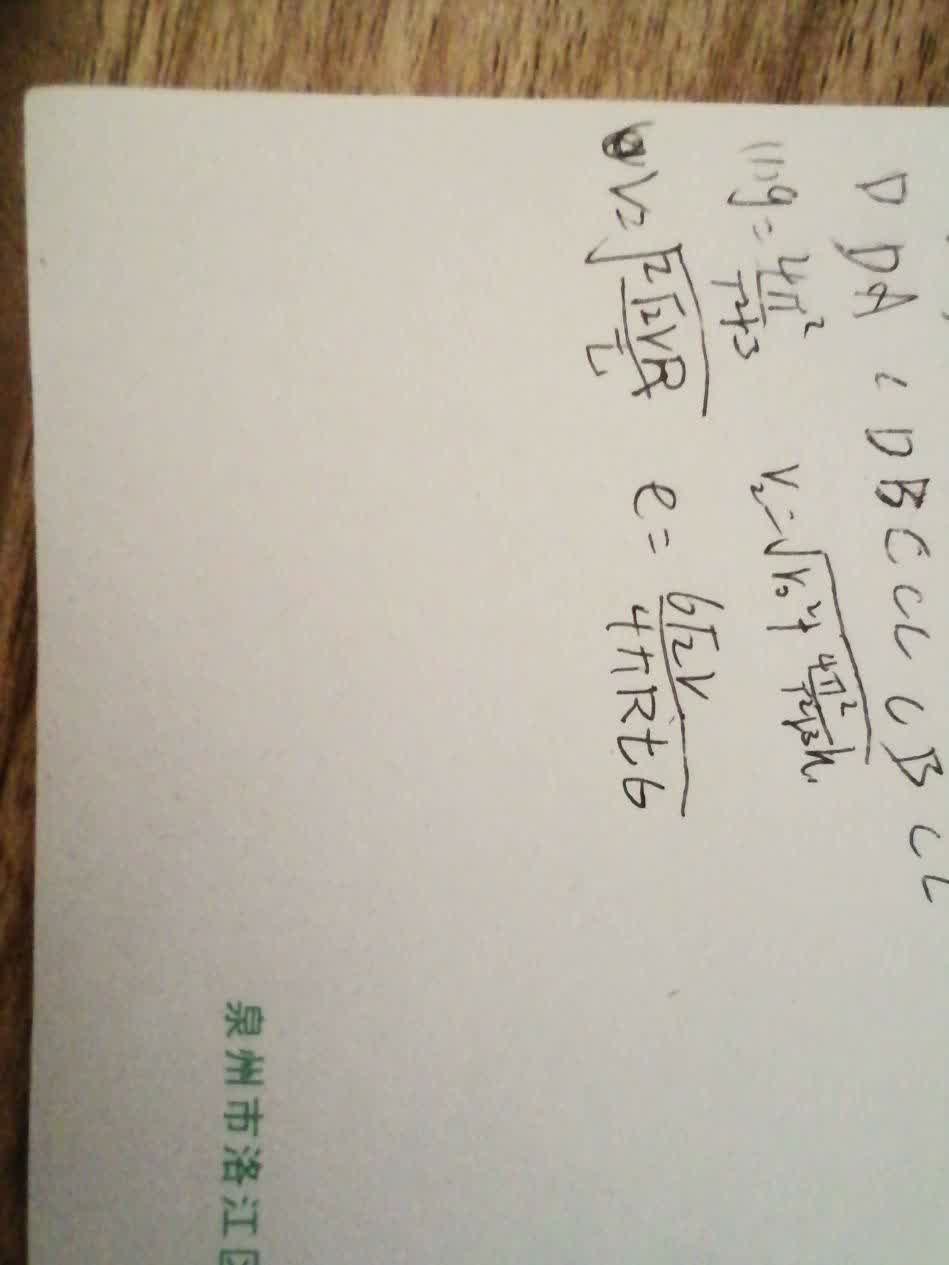 D DA C D B C C C C B C C
(1) g = 4π²/T²γ³ V₂ = √(V₀² + 4π²/T²γ³ h)
V = √(2√2VR/L) e = 6√2V/4πRtb
泉州市洛江区